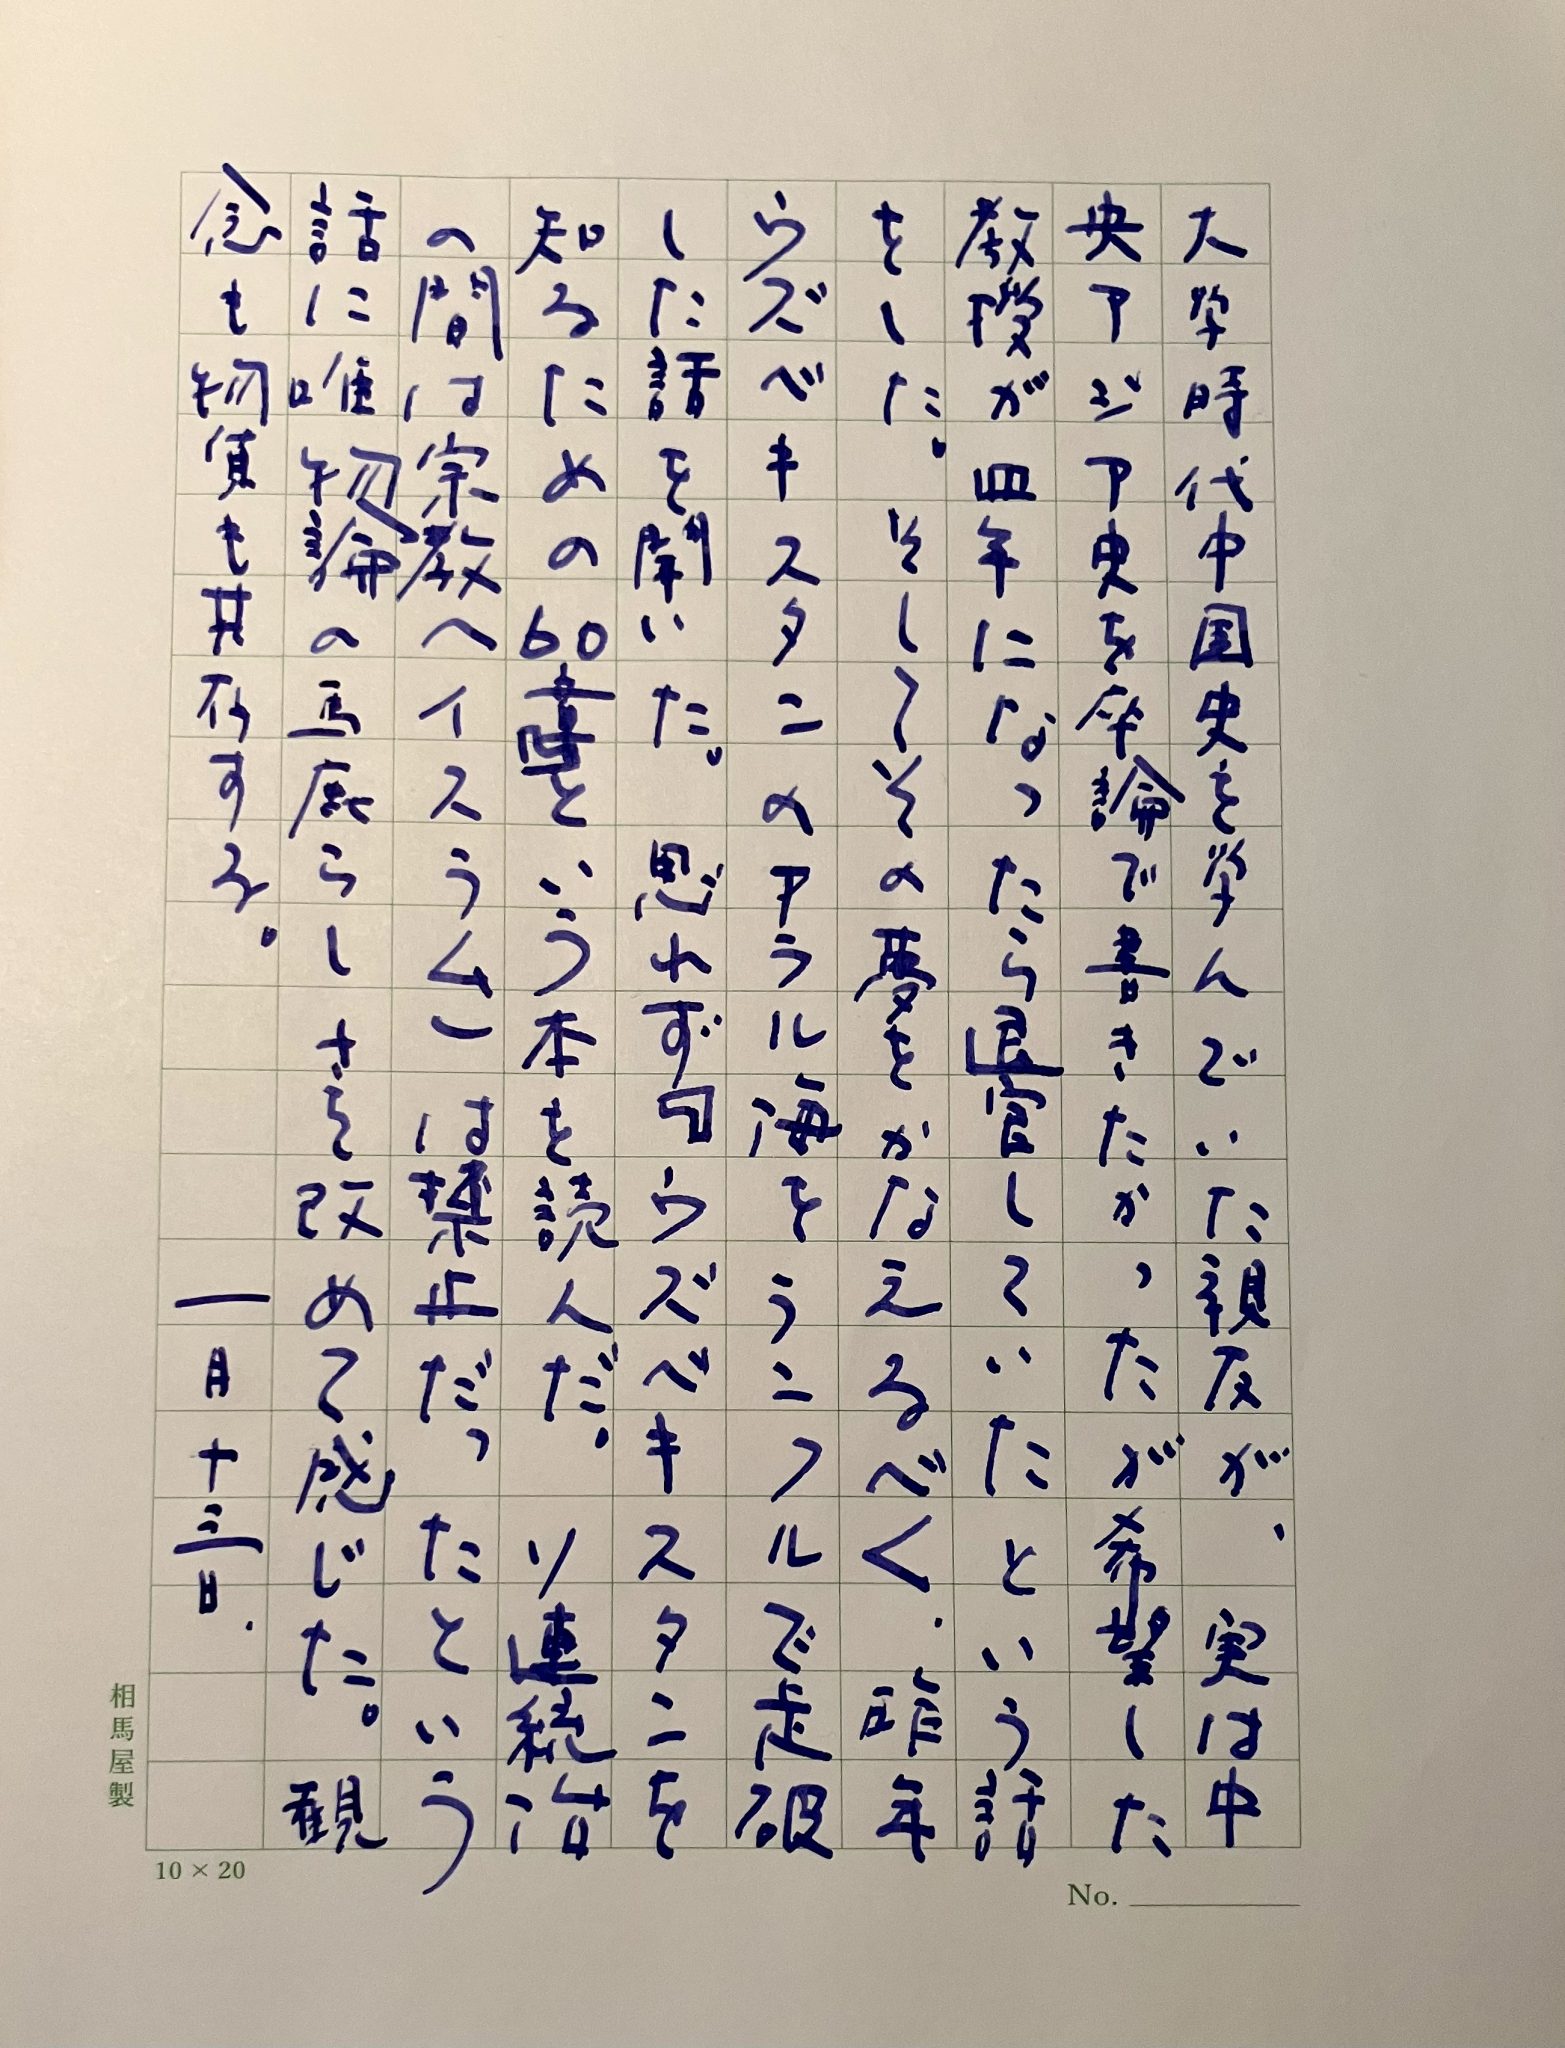 大学時代中国史を学んでいた親友が、実は中
央アジア史を卒論で書きたかったが希望した
教授が四年になったら退官していたという話
をした。そしてその夢をかなえるべく、昨年
ウズベキスタンのアラル海をランクルで走破
した話を聞いた。思わず『ウズベキスタンを
知るための60章』という本を読んだ。ソ連統治
の間は宗教（イスラム）は禁止だったという
話に唯物論の馬鹿らしさを改めて感じた。観
念も物質も共存する。
一月十三日.
相馬屋製
10×20
No.